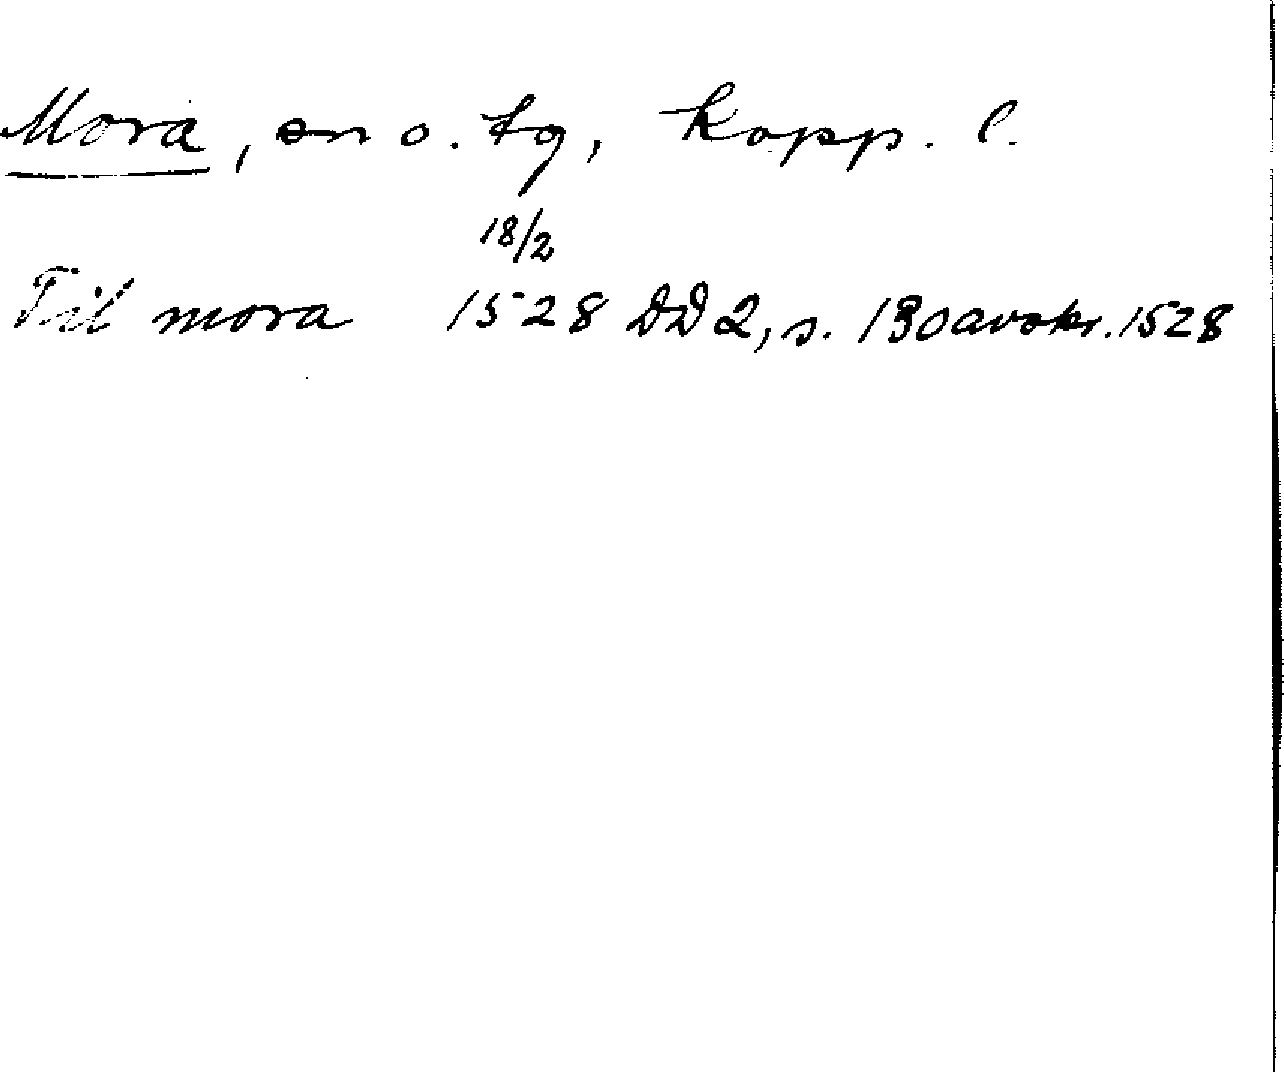 Mora, sn o. tg, Kopp. l.
18/2
Til mora 1528 DD 2, s. 130 avskr. 1528